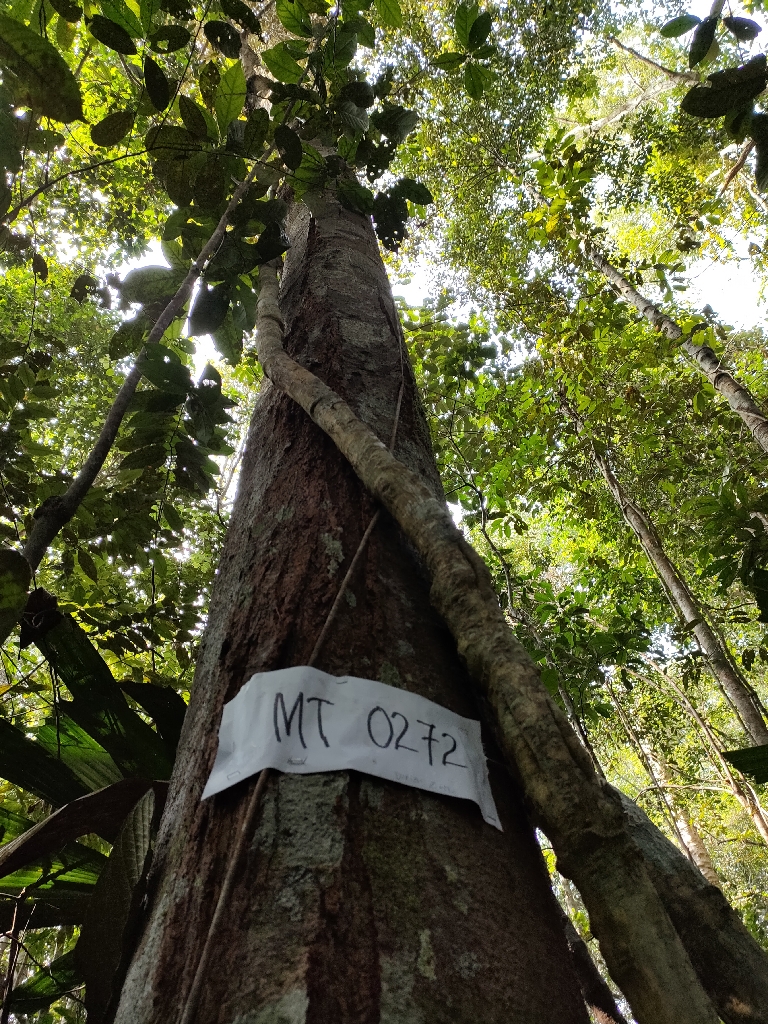 MT 0272